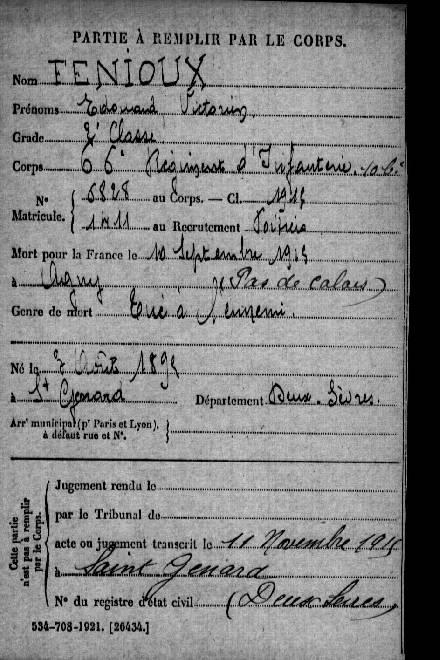 PARTIE À REMPLIR PAR LE CORPS.
Nom FENIOUX
Prénoms Edouard Victorin
Grade 2e Classe
Corps 66e Régiment d'Infanterie. 10e Cie
N° Matricule. { 6828 au Corps. — Cl. 1915
1411 au Recrutement Poitiers
Mort pour la France le 10 Septembre 1915
à Agny (Pas de calais)
Genre de mort Tué à l'ennemi.
Né le 2 Août 1895
à St Génard Département Deux-Sèvres.
Arrt municipal (pr Paris et Lyon), à défaut rue et N°. }
Cette partie n'est pas à remplir par le Corps.
Jugement rendu le
par le Tribunal de
acte ou jugement transcrit le 11 Novembre 1915
à Saint Génard
N° du registre d'état civil (Deux Sèvres)
534-708-1921. [26434.]